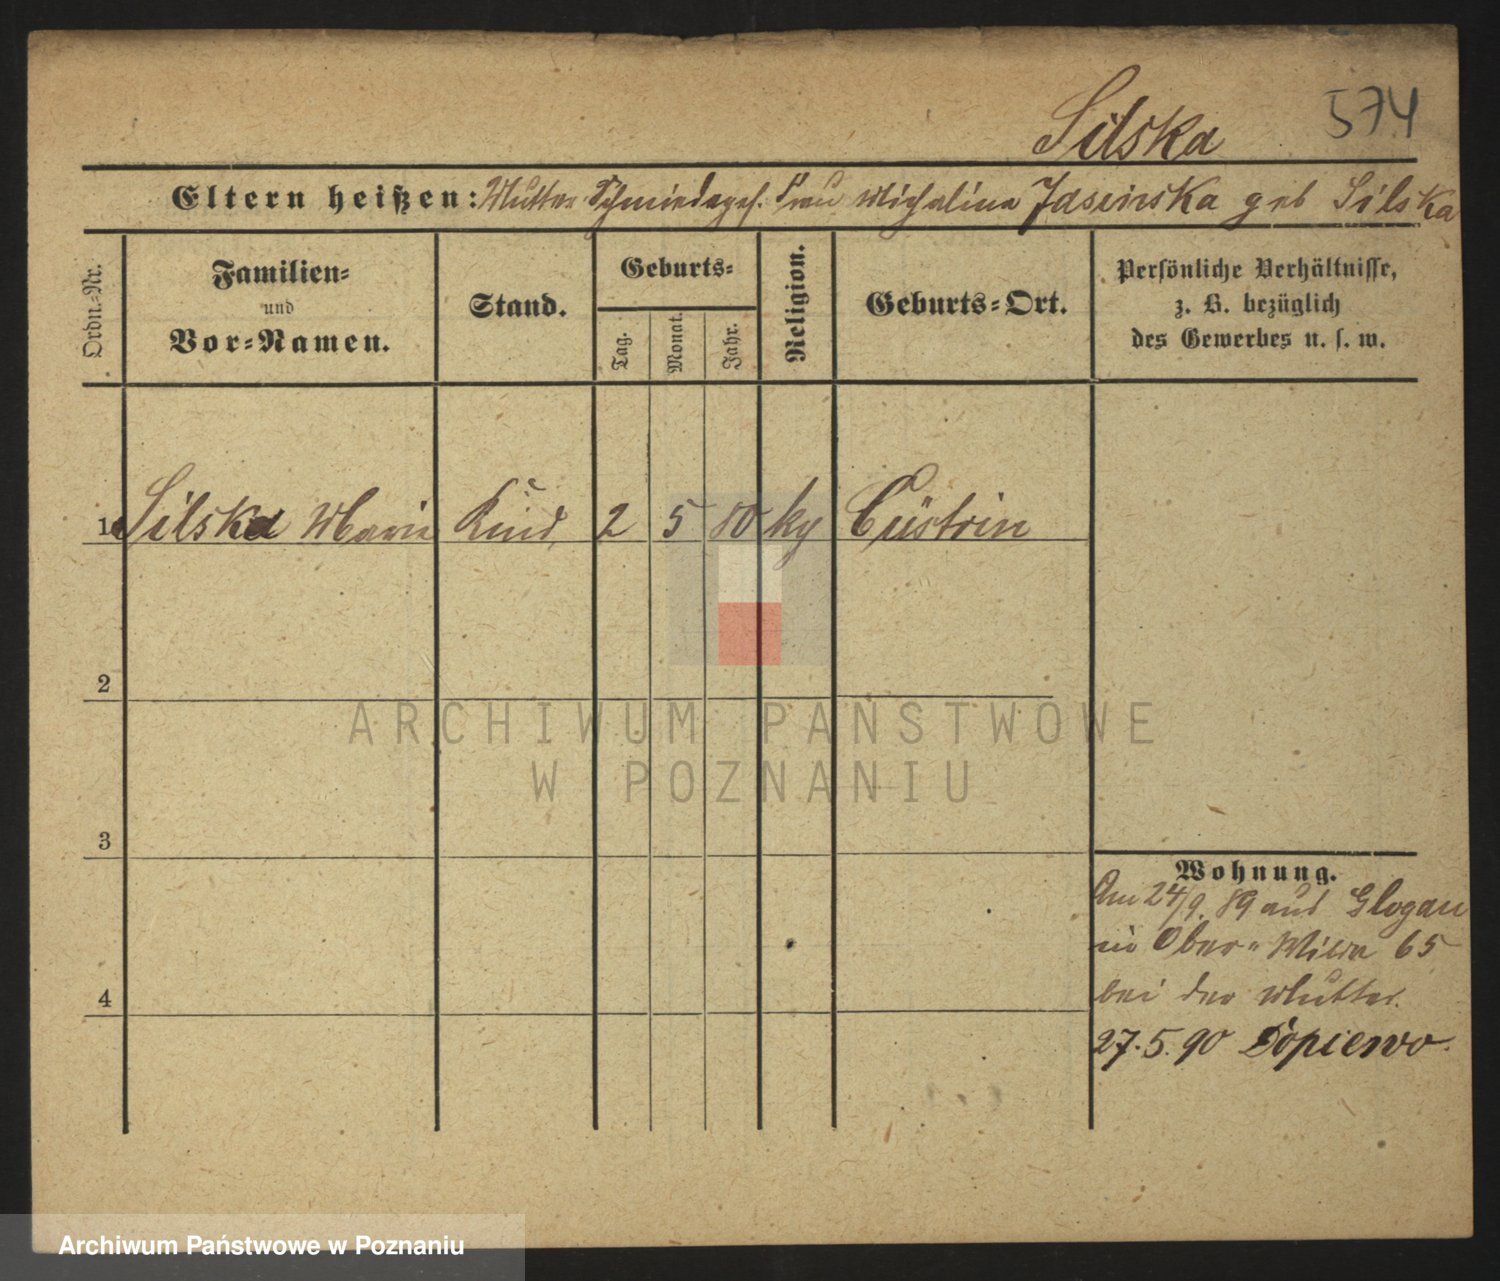 Silska 574
Eltern heißen: Mutter Schmiedeges. Frau Michalina Jasinska geb Silska
Ordn.-Nr.
Familien-
und
Vor-Namen.
Stand.
Geburts-
Tag.
Monat.
Jahr.
Religion.
Geburts-Ort.
Persönliche Verhältnisse,
z. B. bezüglich
des Gewerbes u. s. w.
1 Silska Marie Kind 2 5 80 ky Cüstrin
2
3
4
Wohnung.
Am 24/9. 89 aus Glogau
in Ober-Wilda 65
bei der Mutter.
27.5.90 Dopiewo.
ARCHIWUM PAŃSTWOWE
W POZNANIU
Archiwum Państwowe w Poznaniu